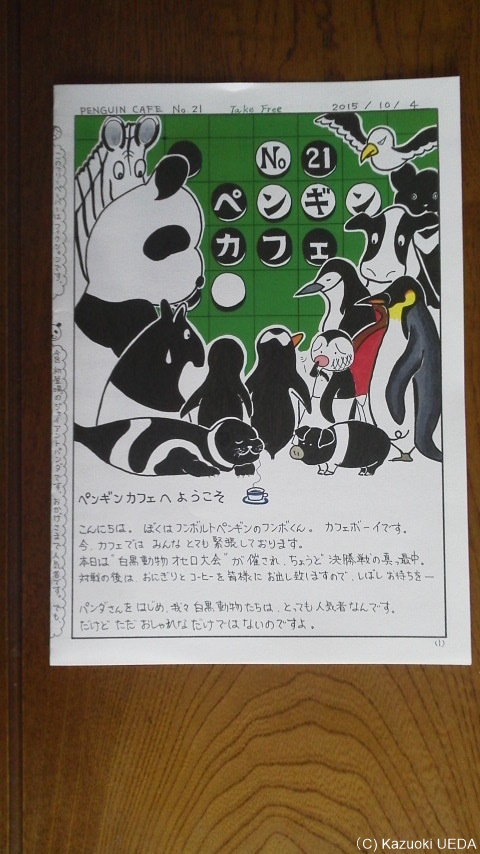 PENGUIN CAFE No.21 Take Free 2015/10/4
No 21
ペンギン
カフェ
ペンギンカフェへようこそ
こんにちは。ぼくはフンボルトペンギンのフンボくん。カフェボーイです。
今、カフェではみんなとても緊張しております。
本日は"白黒動物オセロ大会"が催され、ちょうど決勝戦の真っ最中。
対戦の後は、おにぎりとコーヒーを皆様にお出し致しますので、しばしお待ちを―
パンダさんをはじめ、我々白黒動物たちは、とっても人気者なんです。
だけどただおしゃれなだけではないのですよ。
(1)
(C) Kazuoki UEDA